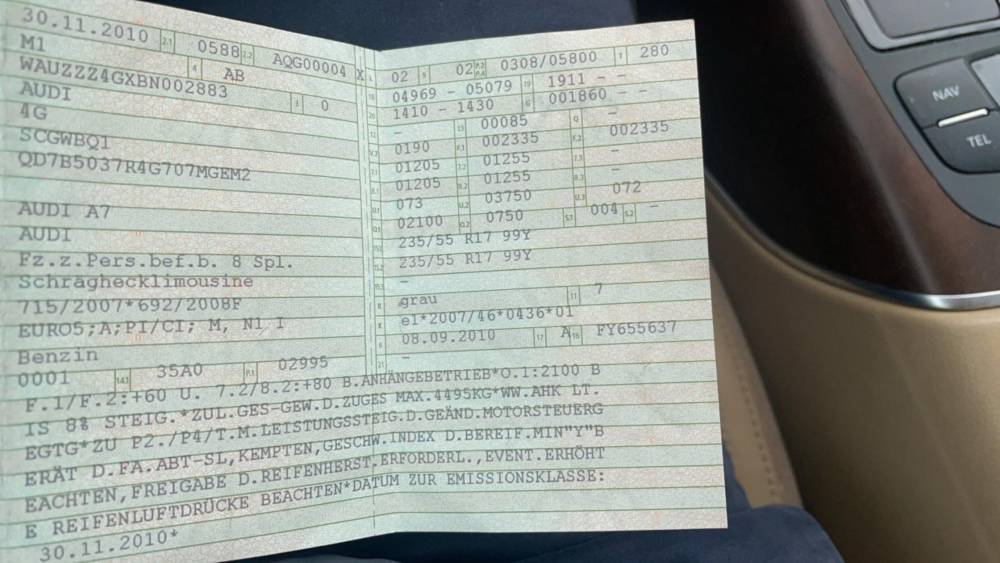 30.11.2010 2.1 0588 2.2 AQG00004 X
M1 4 AB
WAUZZZ4GXBN002883 3 0
AUDI
4G
SCGWBQ1
QD7B5037R4G707MGEM2
AUDI A7
AUDI
Fz.z.Pers.bef.b. 8 Spl.
Schräghecklimousine
715/2007*692/2008F
EURO5;A;PI/CI; M, N1 I
Benzin
0001 14.1 35A0 P.1 02995
L 02 9 02 P.2 P.4 0308/05800 T 280
18 04969 - 05079 19 1911 - -
20 1410 - 1430 G 001860 - -
12 - 13 00085 Q -
V.7 0190 F.1 002335 F.2 002335
7.1 01205 7.2 01255 7.3 -
8.1 01205 8.2 01255 8.3 -
U.1 073 U.2 03750 U.3 072
O.1 02100 O.2 0750 S.1 004 S.2 -
15.1 235/55 R17 99Y
15.2 235/55 R17 99Y
15.3 -
R grau 11 7
K e1*2007/46*0436*01
6 08.09.2010 17 A 16 FY655637
21 -
F.1/F.2:+60 U. 7.2/8.2:+80 B.ANHÄNGEBETRIEB*O.1:2100 B
IS 8% STEIG.*ZUL.GES-GEW.D.ZUGES MAX.4495KG*WW.AHK LT.
EGTG*ZU P2./P4/T.M.LEISTUNGSSTEIG.D.GEÄND.MOTORSTEUERG
ERÄT D.FA.ABT-SL,KEMPTEN,GESCHW.INDEX D.BEREIF.MIN"Y"B
EACHTEN,FREIGABE D.REIFENHERST.ERFORDERL.,EVENT.ERHÖHT
E REIFENLUFTDRÜCKE BEACHTEN*DATUM ZUR EMISSIONSKLASSE:
30.11.2010*
NAV
TEL